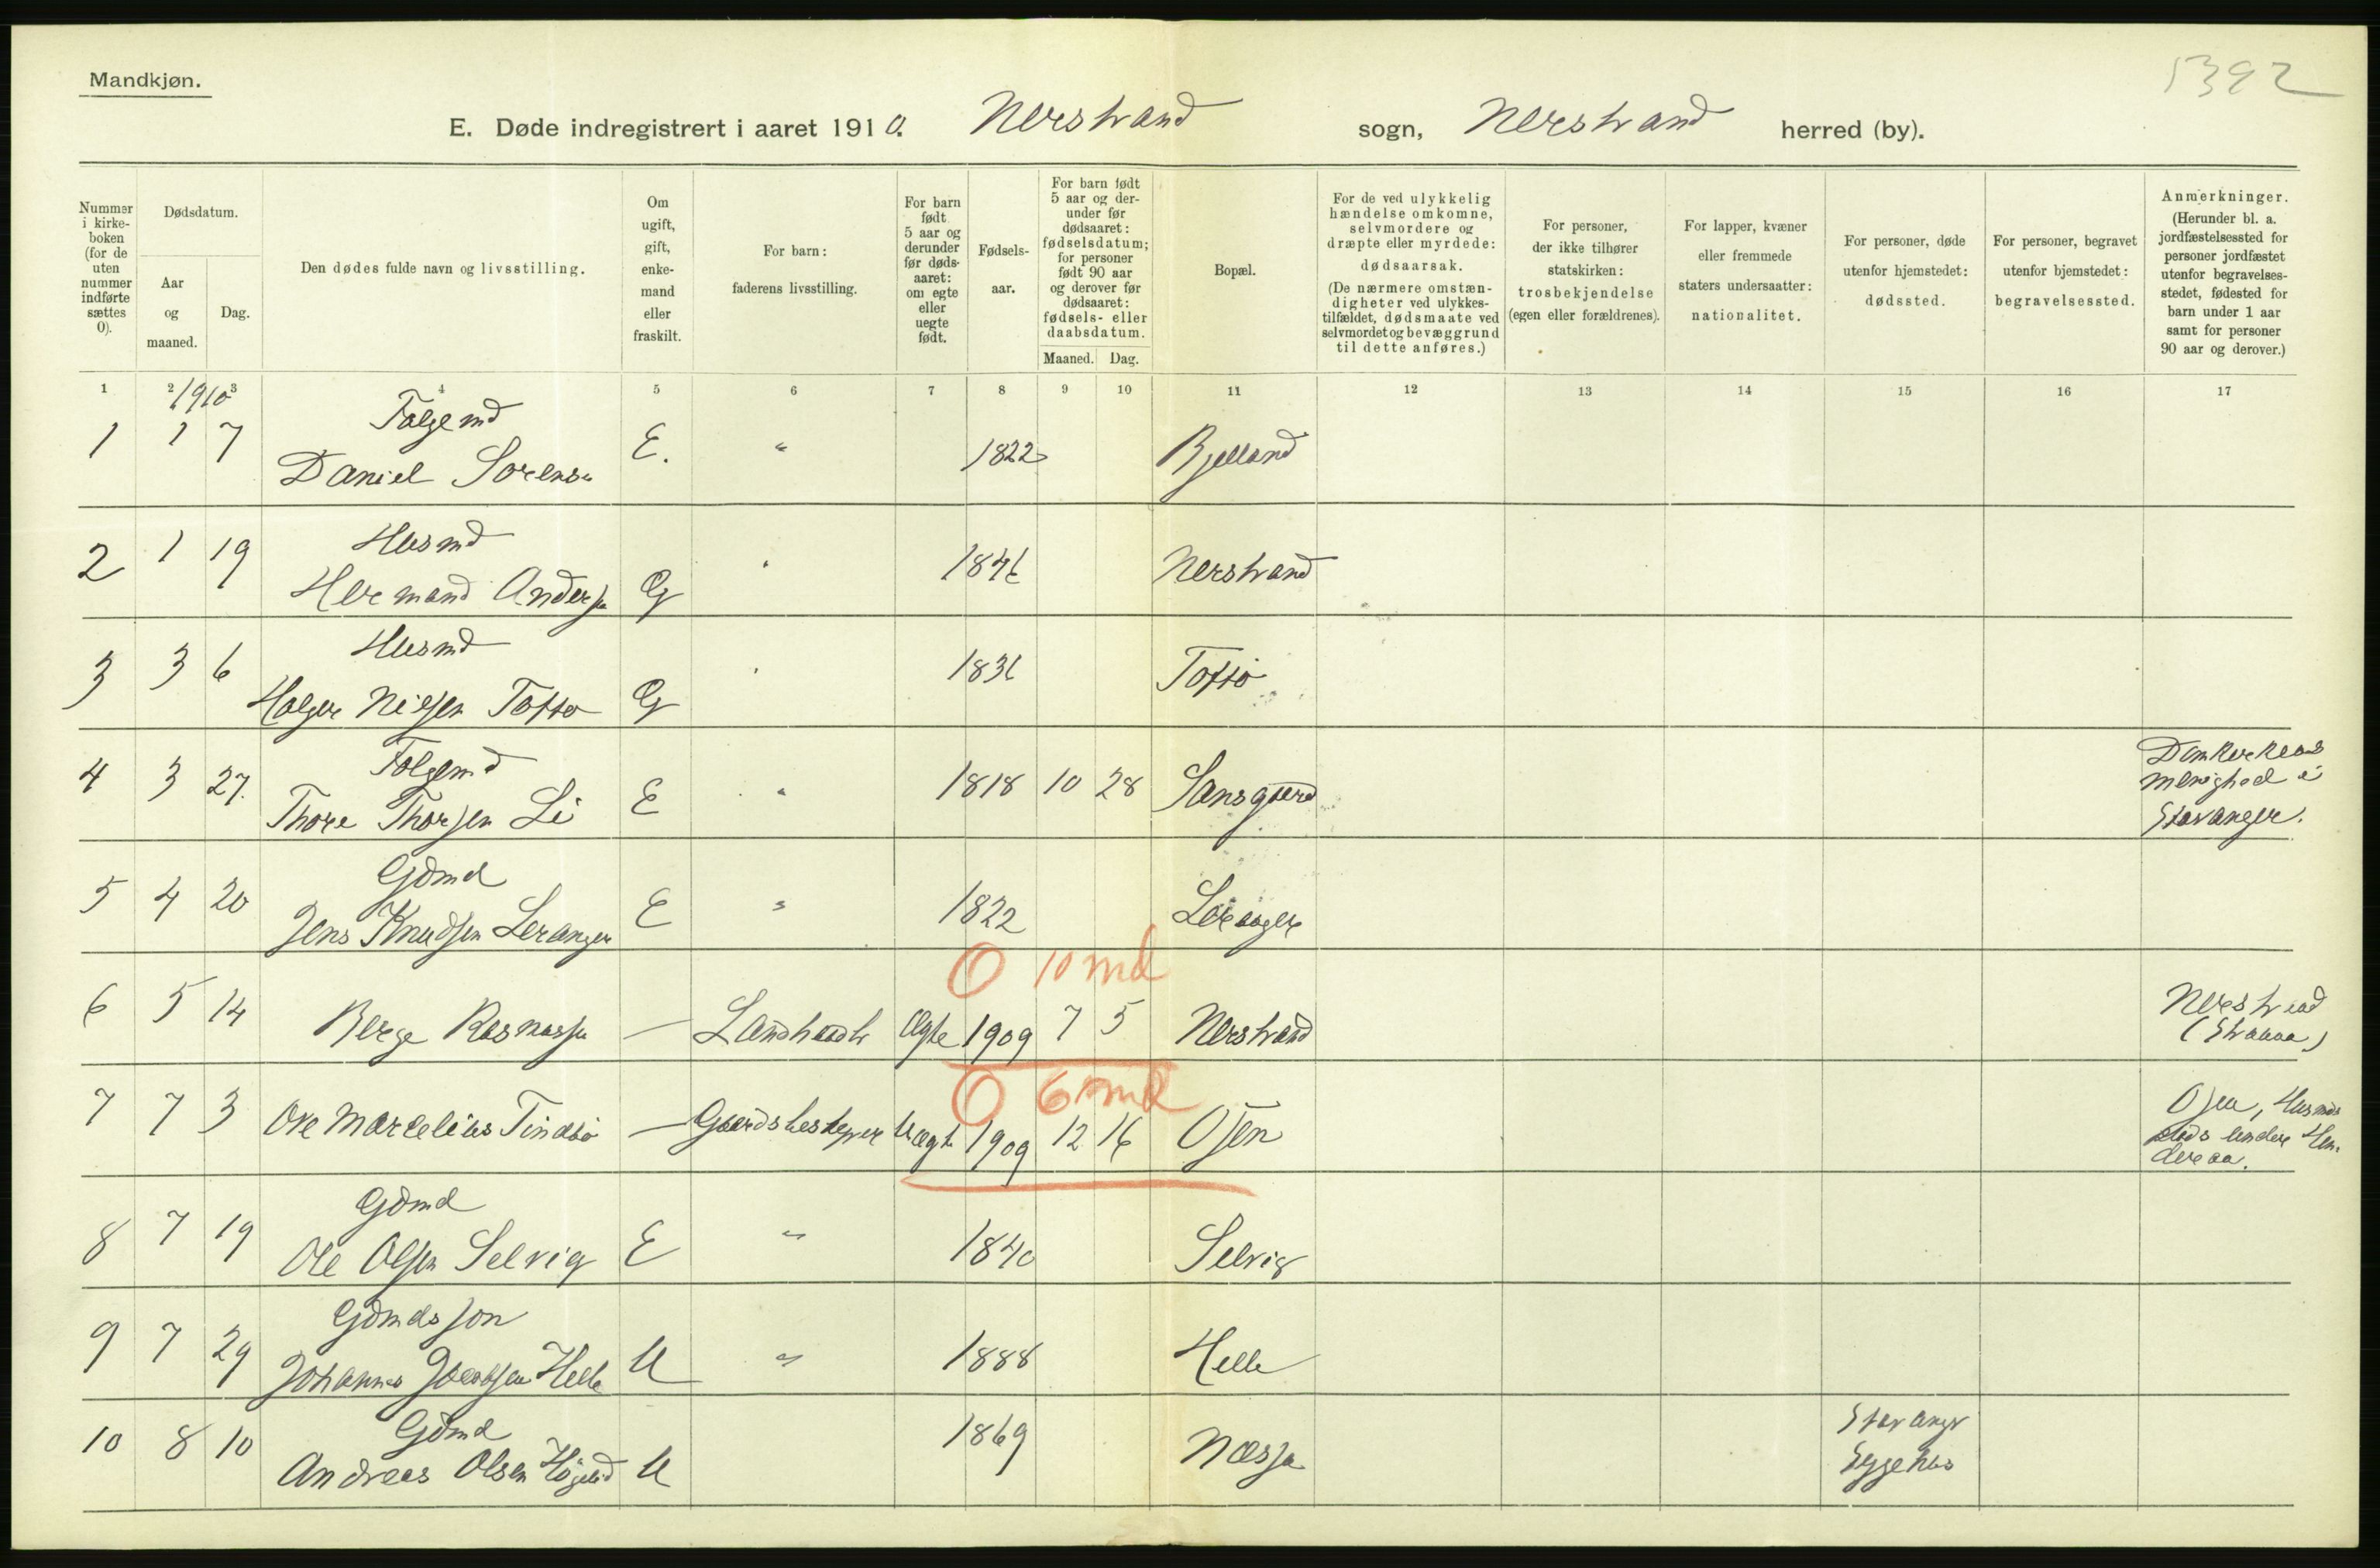 Mandkjøn.
5392
E. Døde indregistrert i aaret 1910. Nerstrand sogn, Nerstrand herred (by).
Nummer i kirke-boken (for de uten nummer indførte sættes 0).
Dødsdatum.
Aar og maaned.
Dag.
Den dødes fulde navn og livsstilling.
Om ugift, gift, enke-mand eller fraskilt.
For barn: faderens livsstilling.
For barn født 5 aar og derunder før døds-aaret: om egte eller uegte født.
Fødsels-aar.
For barn født 5 aar og der-under før dødsaaret: fødselsdatum; for personer født 90 aar og derover før dødsaaret: fødsels- eller daabsdatum.
Maaned. Dag.
Bopæl.
For de ved ulykkelig hændelse omkomne, selvmordere og dræpte eller myrdede: dødsaarsak. (De nærmere omstæn-digheter ved ulykkes-tilfældet, dødsmaate ved selvmordet og bevæggrund til dette anføres.)
For personer, der ikke tilhører statskirken: trosbekjendelse (egen eller forældrenes).
For lapper, kvæner eller fremmede staters undersaatter: nationalitet.
For personer, døde utenfor hjemstedet: dødssted.
For personer, begravet utenfor bjemstedet: begravelsessted.
Anmerkninger. (Herunder bl. a. jordfæstelsessted for personer jordfæstet utenfor begravelses-stedet, fødested for barn under 1 aar samt for personer 90 aar og derover.)
1 2 3 4 5 6 7 8 9 10 11 12 13 14 15 16 17
1910
Folgemd
1 1 7 Daniel Sorensn E. " 1822 Bjelland
Husmd
2 1 19 Hermand Andersn G 1846 Nerstrand
Husmd
3 3 6 Holger Nilsen Toftø G 1836 Toftø
Folgemd
4 3 27. Thore Thorsen Li E " 1818 10 28 Sansgaard Domkirkens menighed i Stavanger.
Gdmd
5 4 20 Jens Knudsen Leranger E " 1822 Leranger
0 10 md
6 5 14 Berge Rasmussn — Landhandl Ægte 1909 7 5 Nerstrand Nerstrand (Stranaa)
0 6 md
7 7 3 Ove Marcelius Tindsø — Gaardsbestyrer Uægt 1909 12 16 Osen Osen, Husmds plads under Hin-deraa.
Gdmd
8 7 19 Ole Olsen Selvig E " 1840 Selvig
Gdmds søn
9 7 29 Johannes Jacobsen Helle U " 1888 Helle
Gdmd
10 8 10 Andreas Olsen U 1869 Næsja Stavangr Sygehus